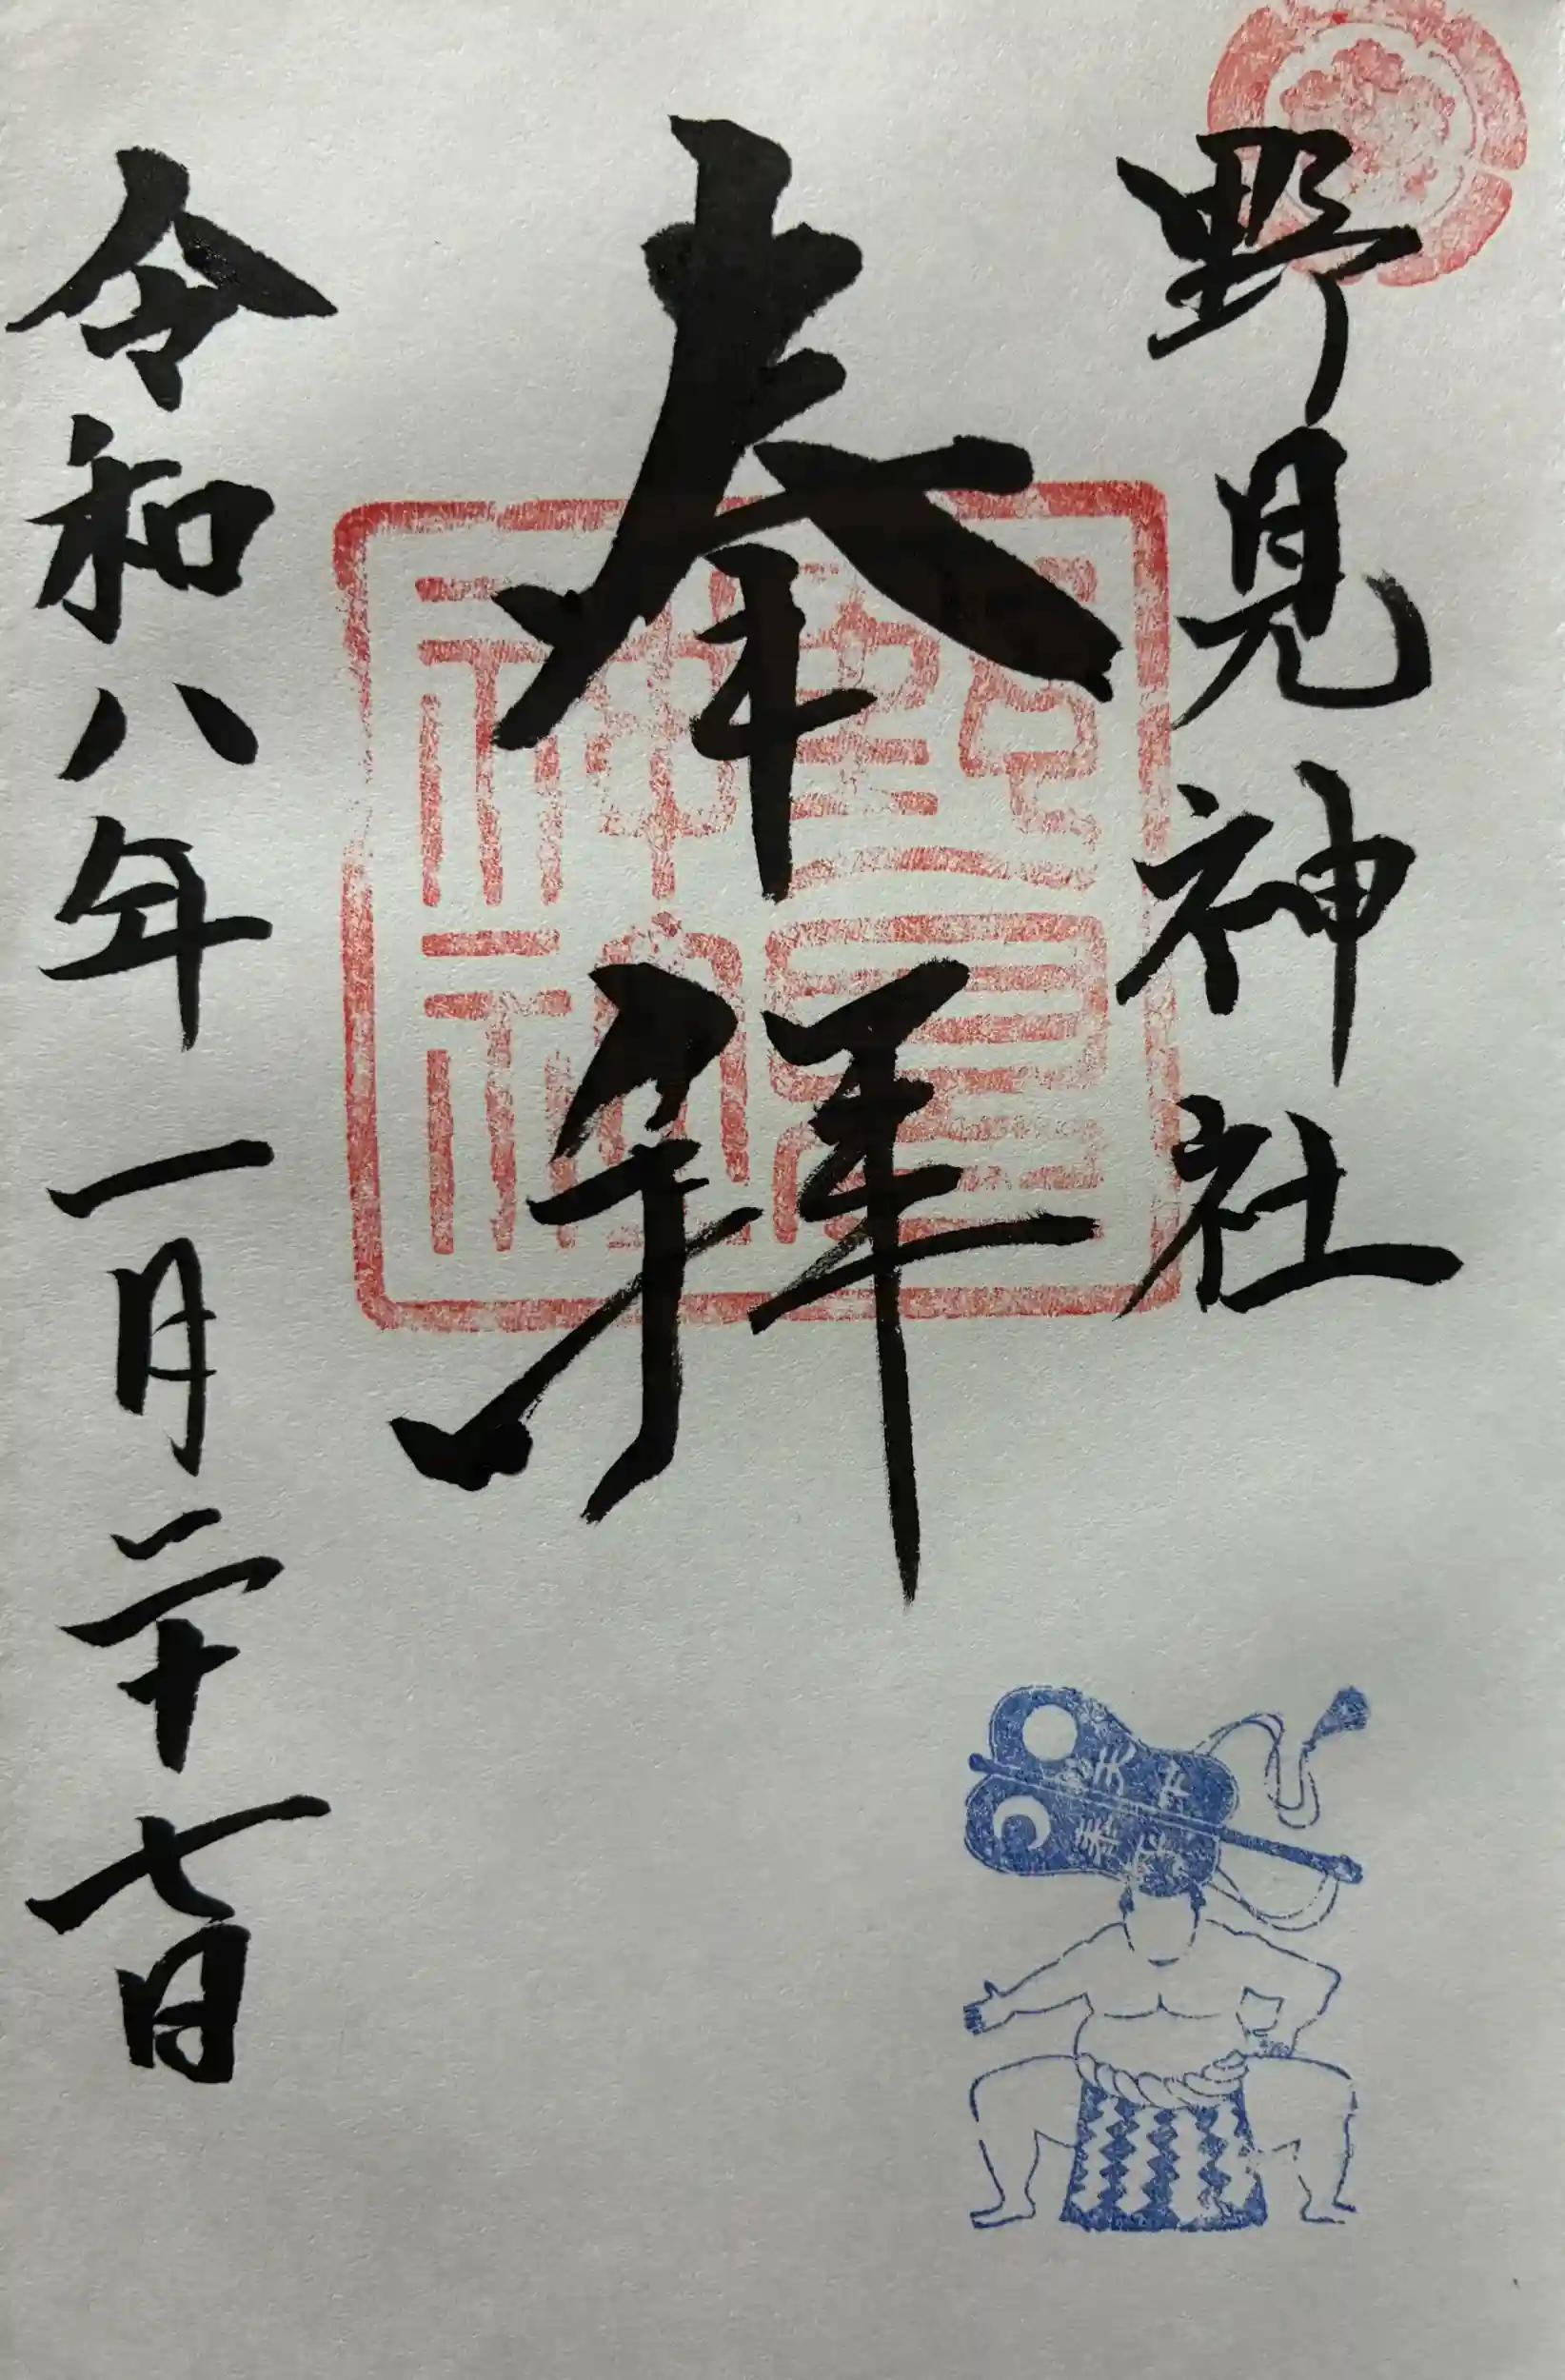 野見神社
奉拝
令和八年一月二十七日
天下
泰平